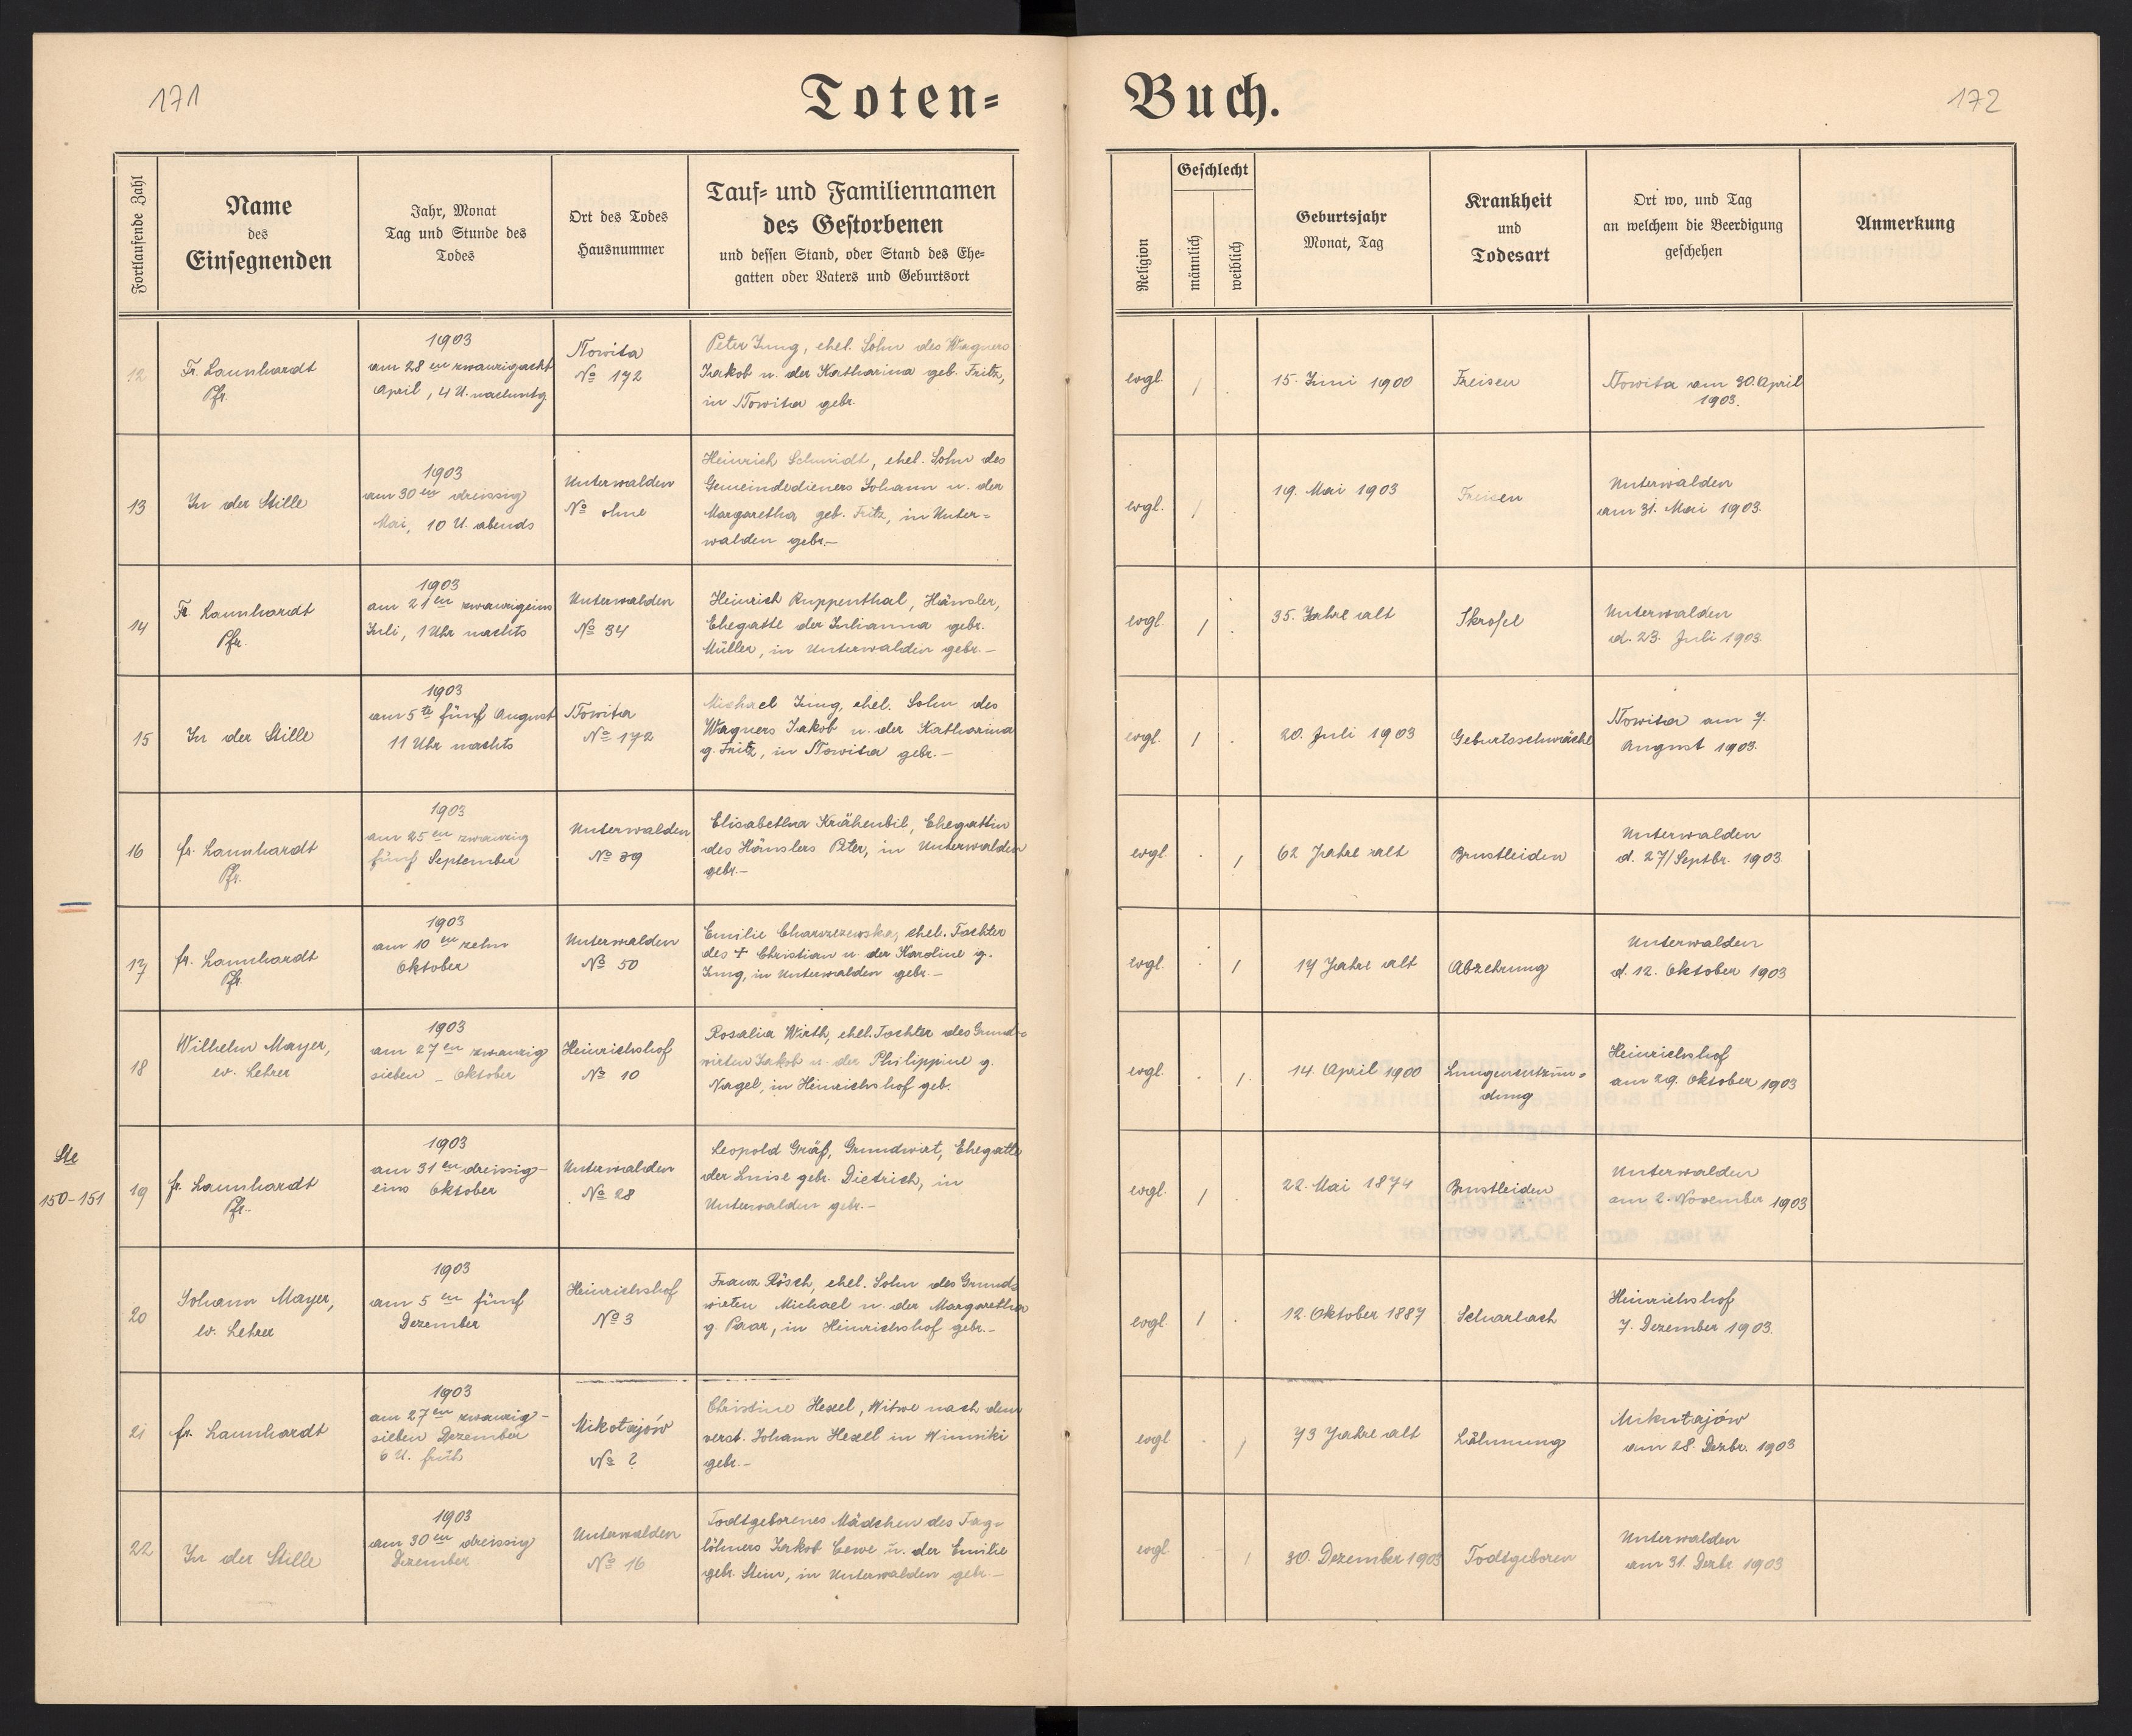 171
Toten=
Buch.
172
Fortlaufende Zahl
Name
des
Einsegnenden
Jahr, Monat
Tag und Stunde des
Todes
Ort des Todes
Hausnummer
Tauf= und Familiennamen
des Gestorbenen
und dessen Stand, oder Stand des Ehe=
gatten oder Vaters und Geburtsort
Religion
Geschlecht
männlich
weiblich
Geburtsjahr
Monat, Tag
Krankheit
und
Todesart
Ort wo, und Tag
an welchem die Beerdigung
geschehen
Anmerkung
12
Fr. Launhardt
Pfr.
1903
am 28en zwanzigacht
April, 4 U. nachmtg.
Nowita
No 172
Peter Jung, ehel. Sohn des Wagners
Jakob u. der Katharina geb. Fritz,
in Nowita gebr.
evgl.
15. Juni 1900
Freisen
Nowita am 30. April
1903.
13
In der Stille
1903
am 30en dreissig
Mai, 10 U. abends
Unterwalden
No ohne
Heinrich Schmidt, ehel. Sohn des
Gemeindedieners Johann u. der
Margaretha geb. Fritz, in Unter=
walden gebr.–
evgl.
19. Mai 1903
Freisen
Unterwalden
am 31. Mai 1903.
14
Fr. Launhardt
Pfr.
1903
am 21en zwanzigeins
Juli, 1 Uhr nachts
Unterwalden
No 34
Heinrich Ruppenthal, Häusler,
Ehegatte der Julianna gebr.
Müller, in Unterwalden gebr.–
evgl.
35. Jahre alt
Skrofel
Unterwalden
d. 23. Juli 1903.
15
In der Stille
1903
am 5te fünf August
11 Uhr nachts
Nowita
No 172
Michael Jung, ehel. Sohn des
Wagners Jakob u. der Katharina
g. Fritz, in Nowita gebr.–
evgl.
20. Juli 1903
Geburtsschwäche
Nowita am 7.
August 1903.
16
fr. Launhardt
Pfr.
1903
am 25en zwanzig
fünf September
Unterwalden
No 39
Elisabetha Krähenbil, Ehegattin
des Häuslers Peter, in Unterwalden
gebr.–
evgl.
62 Jahre alt
Brustleiden
Unterwalden
d. 27/Septbr. 1903
17
fr. Launhardt
Pfr.
1903
am 10en zehn
Oktober
Unterwalden
No 50
Emilie ehel. Tochter
des + Christian u. der Karoline g.
Jung, in Unterwalden gebr.–
evgl.
17 Jahre alt
Abzehrung
Unterwalden
d. 12. Oktober 1903
18
Wilhelm Mayer,
ev. Lehrer
1903
am 27en zwanzig
sieben – Oktober
Heinrichshof
No 10
Rosalia Wirth, ehel. Tochter des Grund=
wirten Jakob u. der Philippine g.
Nagel, in Heinrichshof geb.
evgl.
14. April 1900
Lungenentzün=
dung
Heinrichshof
am 29. Oktober 1903
Ste
150-151
19
fr. Launhardt
Pfr.
1903
am 31en dreissig–
eins Oktober
Unterwalden
No 28
Leopold Gräf, Grundwirt, Ehegatte
der Luise gebr. Dietrich, in
Unterwalden gebr.–
evgl.
22. Mai 1874
Brustleiden
Unterwalden
am 2. November 1903
20
Johann Mayer,
ev. Lehrer
1903
am 5en fünf
Dezember
Heinrichshof
No 3
Franz Rösch, ehel. Sohn des Grund=
wirten Michael u. der Margaretha
g. Paar, in Heinrichshof gebr.–
evgl.
12. Oktober 1887
Scharlach
Heinrichshof
7. Dezember 1903.
21
fr. Launhardt
1903
am 27en zwanzig–
sieben Dezember
6 U. früh
Mikołajów
No ?
Christine Hexel, Witwe nach dem
verst. Johann Hexel in Winniki
gebr.–
evgl
73 Jahre alt
Lähmung
Mikołajów
am 28. Dezbr. 1903
22
In der Stille
1903
am 30en dreissig
Dezember
Unterwalden
No 16
Todtgeborenes Mädchen des Tag=
löhners Jakob u. der Emilie
gebr. Stein, in Unterwalden gebr.–
evgl.
30. Dezember 1903
Todtgeboren
Unterwalden
am 31. Dezbr. 1903